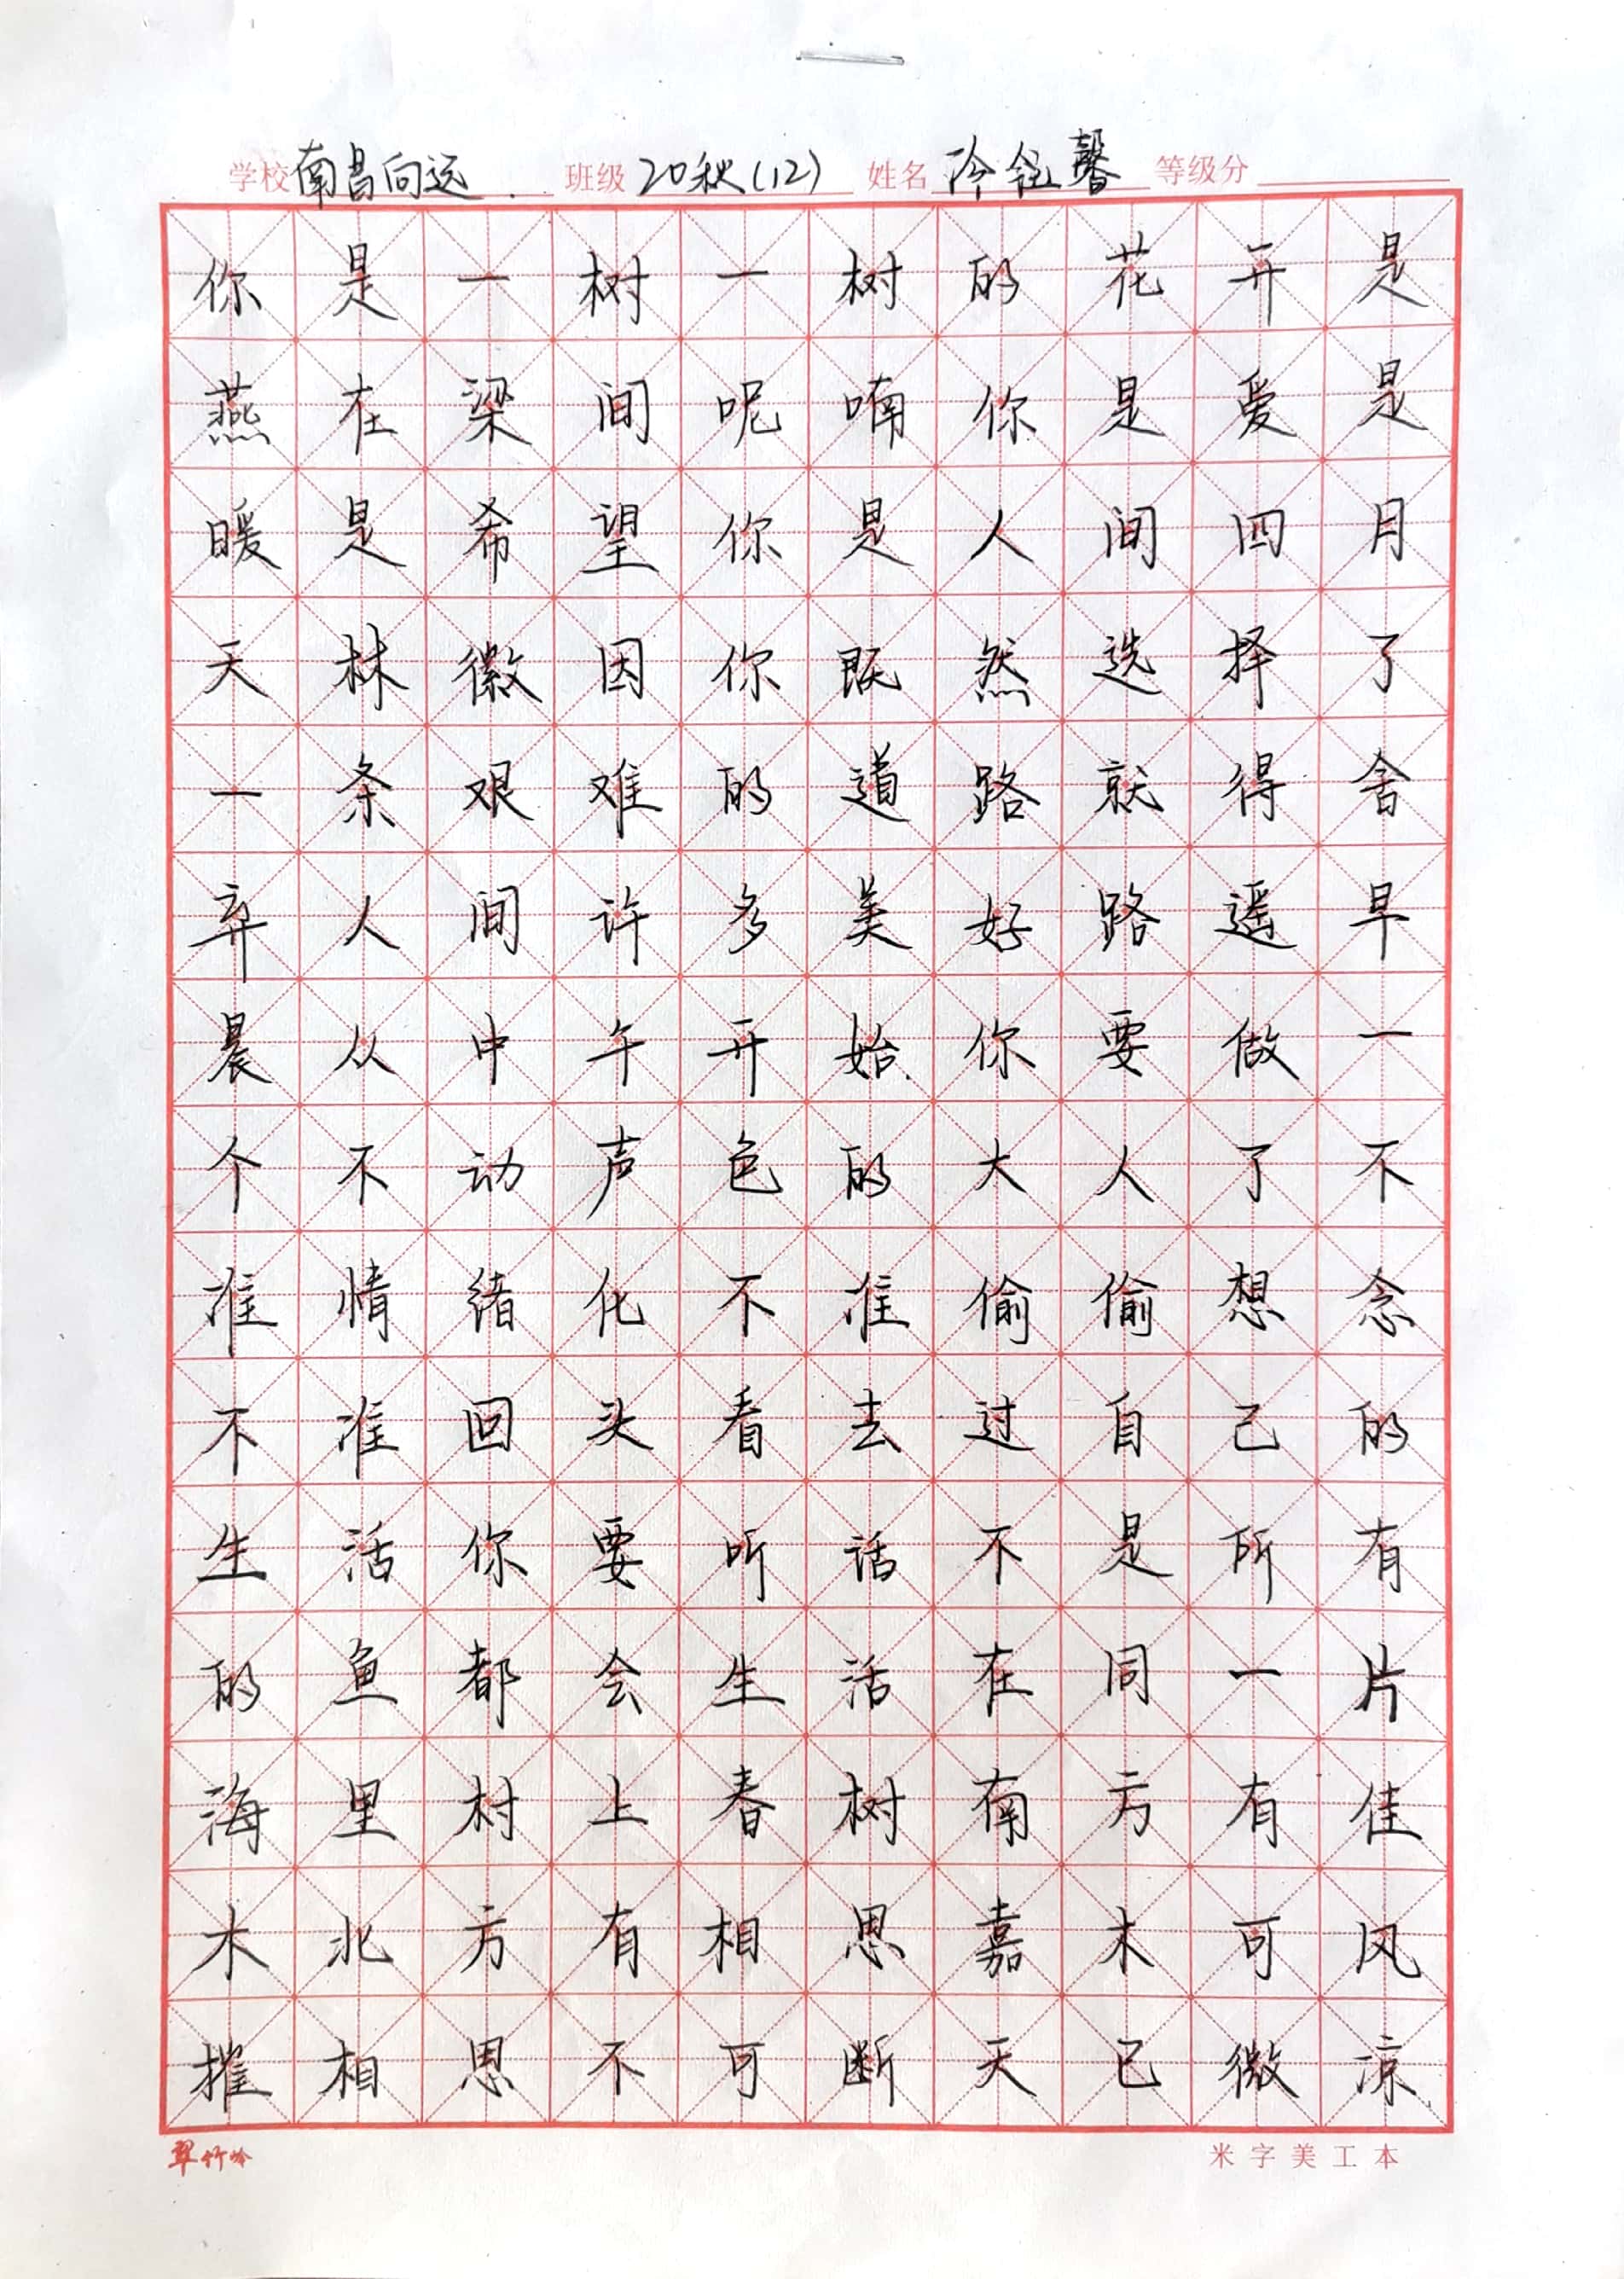 学校 南昌向远 班级 20秋(12) 姓名 冷 馨 等级分
你是一树一树的花开是
燕在梁间呢喃你是爱是
暖是希望你是人间四月
天林徽因你既然选择了
一条艰难的道路就得舍
弃人间许多美好路遥早
晨从中午开始你要做一
个不动声色的大人了不
准情绪化不准偷偷想念
不准回头看去过自己的
生活你要听话不是所有
的鱼都会生活在同一片
海里村上春树南方有佳
木北方有相思嘉木可风
摧相思不可断天已微凉
翠竹吟
米字美工本